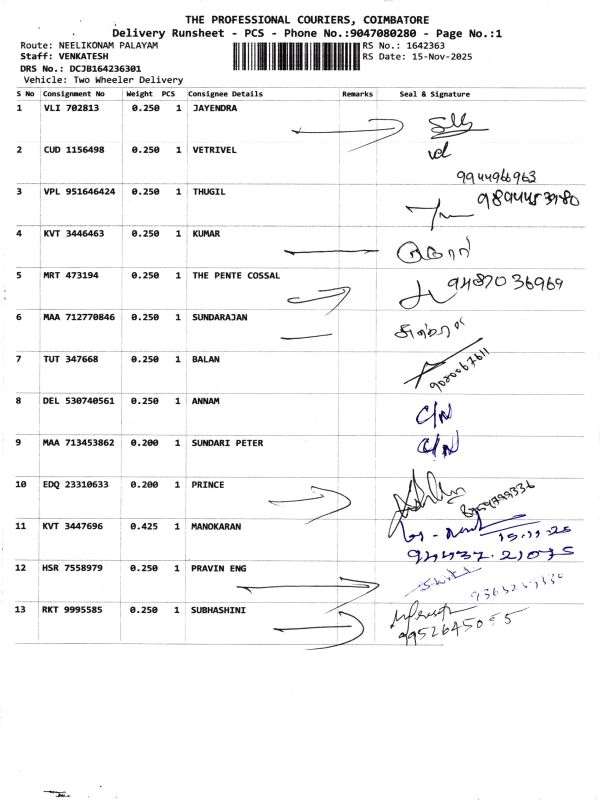 THE PROFESSIONAL COURIERS, COIMBATORE
Delivery Runsheet - PCS - Phone No.:9047080280 - Page No.:1
Route: NEELIKONAM PALAYAM
RS No.: 1642363
Staff: VENKATESH
RS Date: 15-Nov-2025
DRS No.: DCJB164236301
Vehicle: Two Wheeler Delivery
S No Consignment No Weight PCS Consignee Details Remarks Seal & Signature
1 VLI 702813 0.250 1 JAYENDRA
2 CUD 1156498 0.250 1 VETRIVEL
9944966963
3 VPL 951646424 0.250 1 THUGIL
4 KVT 3446463 0.250 1 KUMAR
5 MRT 473194 0.250 1 THE PENTE COSSAL 9487036969
6 MAA 712770846 0.250 1 SUNDARAJAN
7 TUT 347668 0.250 1 BALAN
8 DEL 530740561 0.250 1 ANNAM C/N
9 MAA 713453862 0.200 1 SUNDARI PETER C/N
10 EDQ 23310633 0.200 1 PRINCE
11 KVT 3447696 0.425 1 MANOKARAN 15.11.25
94437.21075
12 HSR 7558979 0.250 1 PRAVIN ENG
13 RKT 9995585 0.250 1 SUBHASHINI